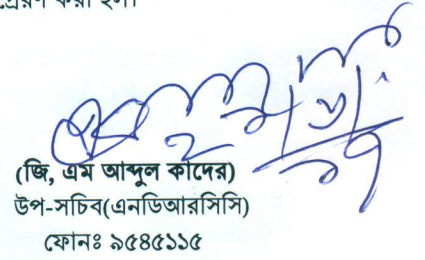 প্রেরণ করা হলো
(জি, এম আব্দুল কাদের)
উপ-সচিব(এনডিআরসিসি)
ফোনঃ ৯৫৪৫১১৫